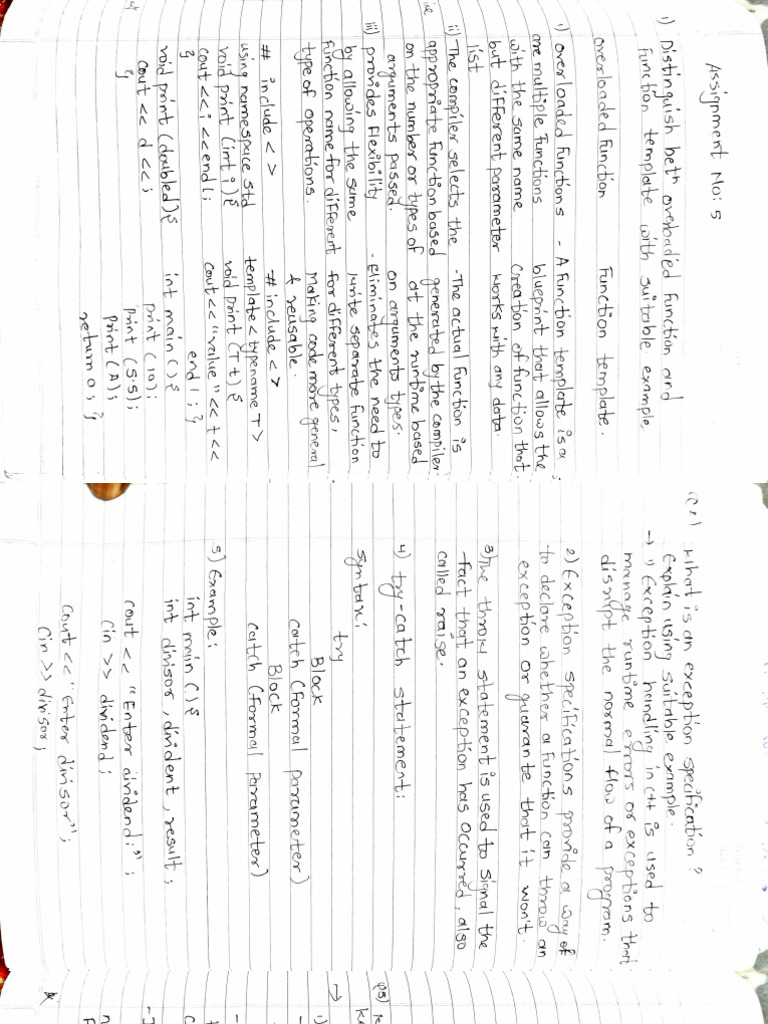 Assignment No: 5
1) Distinguish betn overloaded Function and
function template with suitable example.
overloaded Function    Function template.
1) overloaded Functions - A Function template is a
are multiple Functions    blueprint that allows the
with the same name    Creation of function that
but different parameter    works with any data.
list
ii) The compiler selects the    - The actual Function is
appropriate function based    generated by the compiler
on the number or types of    at the runtime based
arguments passed.    on arguments types.
iii) provides flexibility    - Eliminates the need to
by allowing the same    write separate function
function name for different    for different types,
type of operations.    Making code more general
& reusable.
# include < >    # include < >
using namespace std    template < typename T >
void print (int i) {    void print (T t) {
cout << i << endl;    cout << "value" << t <<
}    endl ; }
void print (double d) {    int main () {
cout << d << ;    print (10);
}    print (5.5);
print (A);
return 0; }
What is an exception specification ?
Explain using suitable example.
→ 1) Exception handling in c++ is used to
manage runtime errors or exceptions that
disrupt the normal flow of a program.
2) Exception specifications provide a way of
to declare whether a function can throw an
exception or guarante that it won't.
3) The throw statement is used to signal the
fact that an exception has occurred, also
called raise.
4) try-catch statement:
syntax:
try
Block
catch (formal parameter)
Block
catch (formal parameter)
5) Example:
int main () {
int divisor, divident, result;
cout << "Enter dividend:" ;
cin >> dividend;
cout << "Enter divisor";
cin >> divisor;